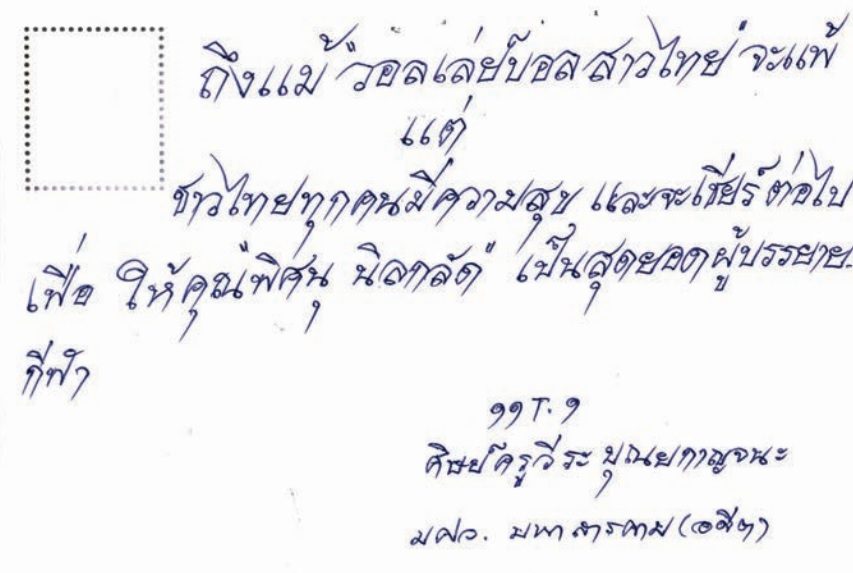 ถึงแม้ "วอลเล่ย์บอลสาวไทย" จะแพ้
แต่
ชาวไทยทุกคนมีความสุข และจะเชียร์ต่อไป
เพื่อ ให้คุณ"พิศนุ นิลกลัด" เป็นสุดยอดผู้บรรยาย
กีฬา
ศิษย์ครูวีระ บุณยกาญจนะ
มศว. มหาสารคาม (อดีต)